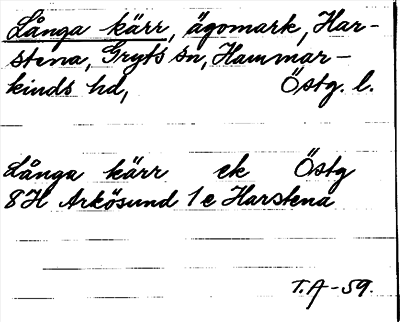 Långa kärr, ägomark, Har-
stena, Gryts sn, Hammar-
kinds hd, Östg. l.
Långa kärr ek Östg
8H Arkösund 1e Harstena
T.A-59.